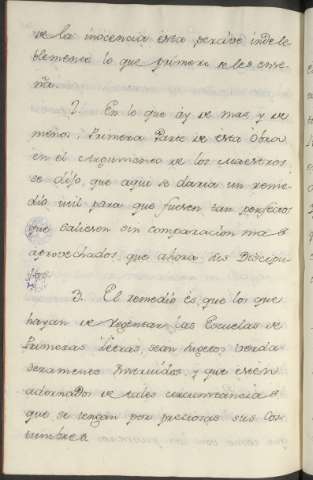 de la inocencia esta perdise indele
blemente lo que primero se les ense
ña.
2. En lo que áy de mas, y de
menos, Primera Parte de esta Obra
en el Argumento de los Maestros
se dijo, que aqui se daria un reme
dio util para que fuesen tan perfectos
que saliesen sin comparacion mas
aprovechados, que ahora sus Discipu
los.
3. El remedio és, que los que
hayan de regentar las Escuelas de
Primeras Letras, sean sugetos verda
deramente instruidos, y que esten
adornados de tales circunstancias
que se tengan por preciosas sus cos
tumbres